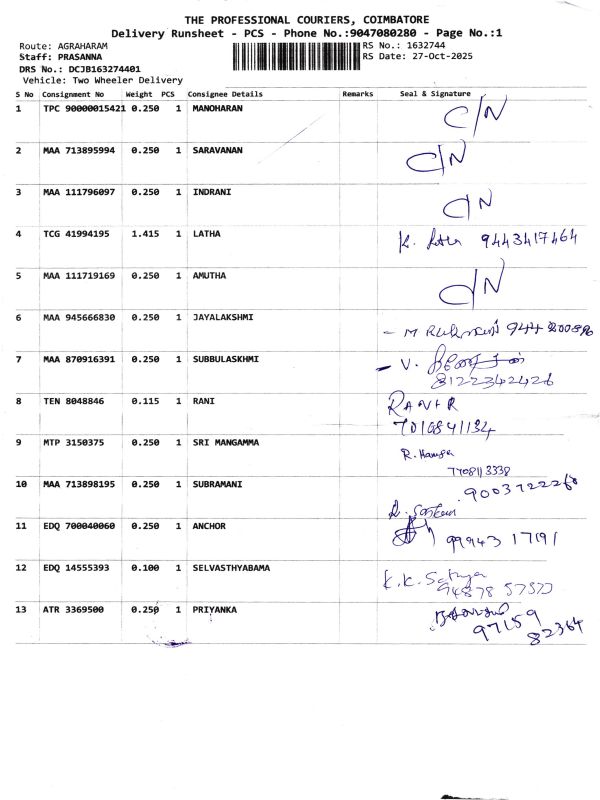 THE PROFESSIONAL COURIERS, COIMBATORE
Delivery Runsheet - PCS - Phone No.:9047080280 - Page No.:1
Route: AGRAHARAM RS No.: 1632744
Staff: PRASANNA RS Date: 27-Oct-2025
DRS No.: DCJB163274401
Vehicle: Two Wheeler Delivery
S No Consignment No Weight PCS Consignee Details Remarks Seal & Signature
1 TPC 90000015421 0.250 1 MANOHARAN C/N
2 MAA 713895994 0.250 1 SARAVANAN C/N
3 MAA 111796097 0.250 1 INDRANI C/N
4 TCG 41994195 1.415 1 LATHA K. Latha 9443417464
5 MAA 111719169 0.250 1 AMUTHA C/N
6 MAA 945666830 0.250 1 JAYALAKSHMI - M
7 MAA 870916391 0.250 1 SUBBULASKHMI - V.
8122342426
8 TEN 8048846 0.115 1 RANI
7010841134
9 MTP 3150375 0.250 1 SRI MANGAMMA R.
7708113338
10 MAA 713898195 0.250 1 SUBRAMANI
11 EDQ 700040060 0.250 1 ANCHOR 99943 17191
12 EDQ 14555393 0.100 1 SELVASTHYABAMA K.K. Sathya
13 ATR 3369500 0.250 1 PRIYANKA
97159
82364